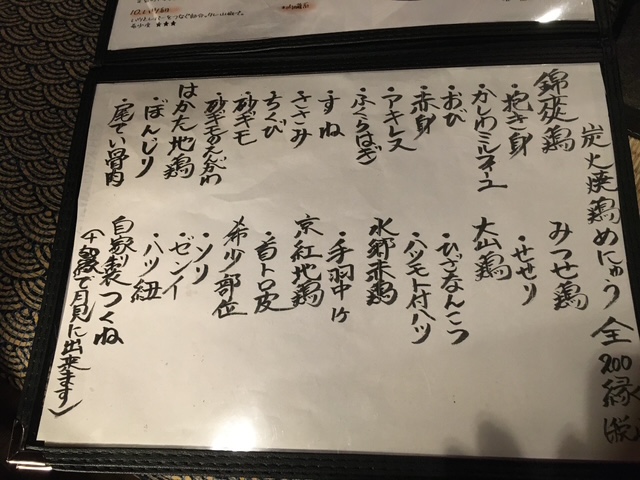 炭火焼鶏めにゅう 全200縁
錦爽鶏
・抱き身
・かしわミルフィーユ
・おび
・赤身
・アキレス
・ふくらはぎ
・すね
・ささみ
・ちくび
・砂ギモ
・砂ギモのえんがわ
はかた地鶏
・ぼんじり
・尾てい骨肉
みつせ鶏
・せせり
大山鶏
・ひざなんこつ
・ハツモト付ハツ
水郷赤鶏
・手羽中
京紅地鶏
・首トロ皮
希少部位
・ソリ
・ゼンイ
・ハツ紐
自家製つくね
で月見に出来ます)